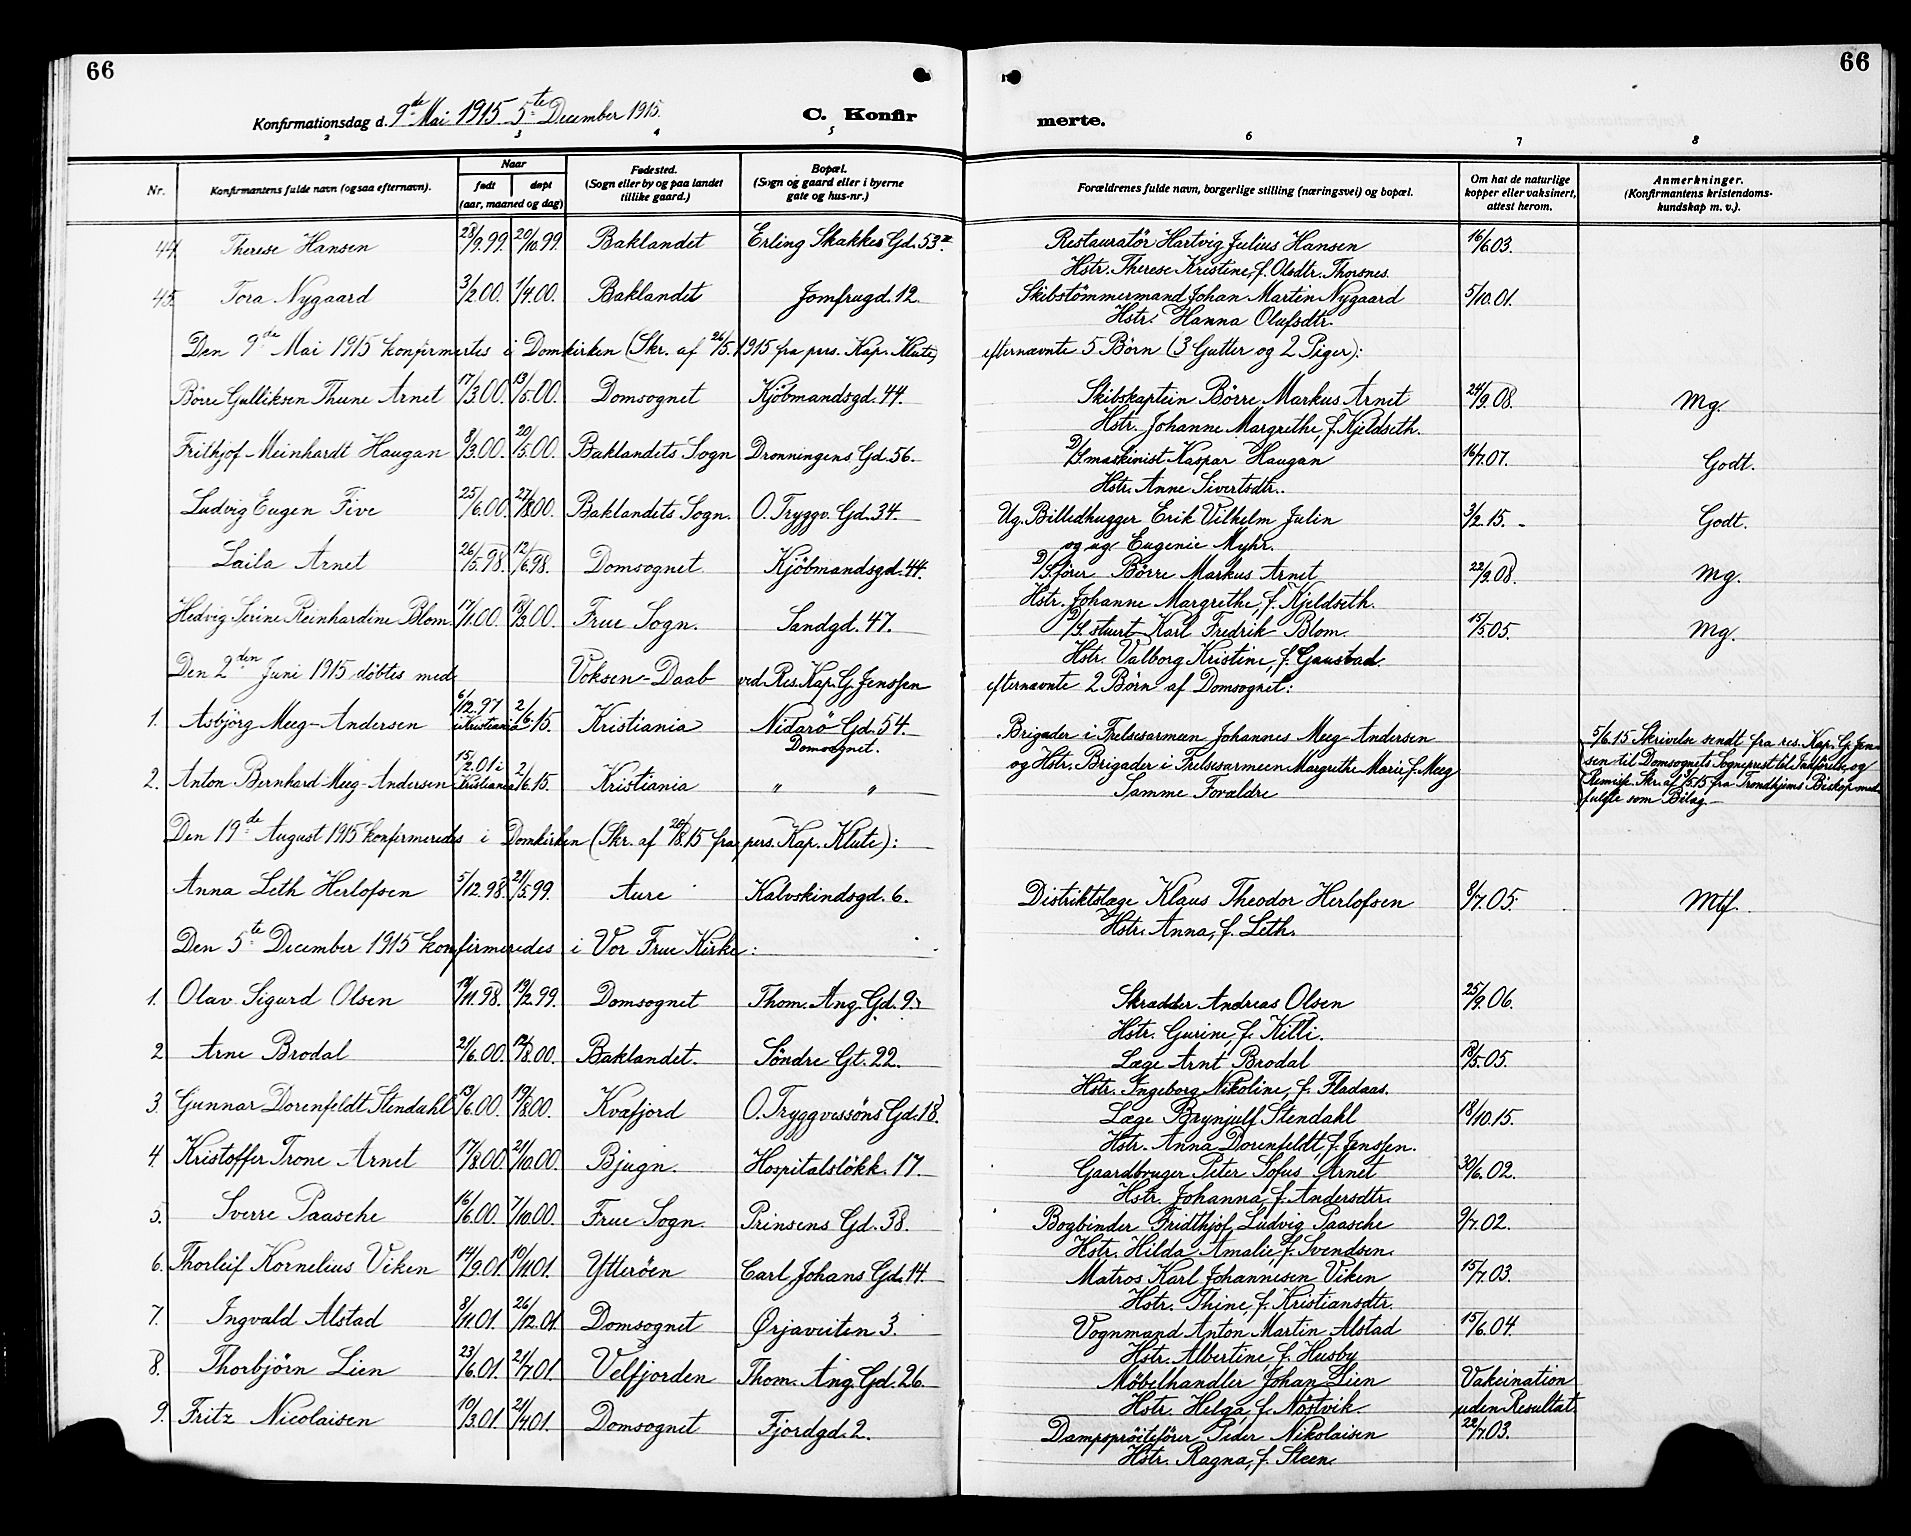 66
66
Konfirmationsdag d. 9de Mai 1915 5te December 1915.
C. Konfir
merte.
2 3 4 5 6 7 8
Nr.
Konfirmantens fulde navn (ogsaa efternavn).
Naar
født døpt
(aar, maaned og dag)
Fødested.
(Sogn eller by og paa landet
tillike gaard.)
Bopæl.
(Sogn og gaard eller i byerne
gate og hus-nr.)
Forældrenes fulde navn, borgerlige stilling (næringsvei) og bopæl.
Om hat de naturlige
kopper eller vaksinert,
attest herom.
Anmerkninger.
(Konfirmantens kristendoms-
kundskap m. v.).
44. Therese Hansen 28/9.99. 20/10.99. Baklandet Erling Skakkes Gd. 53 Restauratör Hartvig Julius Hansen 16/6.03.
Hstr. Therese Kristine, f. Olsdtr. Thorsnes.
45. Tora Nygaard 3/2.00. 1/4.00. Baklandet Jomfrugd. 12. Skibstömmermand Johan Martin Nygaard 5/10.01.
Hstr. Hanna Olufsdtr.
Den 9de Mai 1915 konfirmertes i Domkirken (Skr. af 26/5.1915 fra pers. Kap. Klute) efternævnte 5 Börn (3 Gutter og 2 Piger):
Börre Gulliksen Thune Arnet 17/3.00. 13/5.00. Domsognet Kjöbmandsgd. 44. Skibskaptein Börre Markus Arnet 24/9.08. Mg.
Hstr. Johanne Margrethe, f. Kjeldseth.
Frithjof Meinhardt Haugan 8/3.00. 20/5.00. Baklandets Sogn Dronningens Gd. 56. D/S. maskinist Kaspar Haugan 16/7.07. Godt.
Hstr. Anne Sivertsdtr.
Ludvig Eugen Five 25/6.00. 27/8.00. Baklandets Sogn. O. Tryggv. Gd. 34. Ug. Billedhugger Erik Vilhelm Julin 3/2.15. Godt.
og ug. Eugenie Myhr.
Laila Arnet 26/5.98. 12/6.98. Domsognet Kjöbmandsgd. 44. D/S. förer Börre Markus Arnet 22/9.08. Mg.
Hstr. Johanne Margrethe, f. Kjeldseth.
Hedvig Serine Reinhardine Blom. 17/1.00. 18/3.00. Frue Sogn. Sandgd. 47. D/S. stuert Karl Fredrik Blom. 15/5.05. Mg.
Hstr. Valborg Kristine, f. Gaustad
Den 2den Juni 1915 döbtes med Voksen-Daab ved Res. Kap. G. Jenssen efternævnte 2 Börn af Domsognet:
1. Asbjörg Meeg-Andersen 6/12.97 i Kristiania 2/6.15. Kristiania Nidarö Gd. 54. Brigader i Frelsesarmeen Johannes Meeg-Andersen
Domsognet. og Hstr. Brigader i Frelsesarmeen Margrethe Marie f. Meeg
2. Anton Bernhard Meeg-Andersen 15/2.01 i Kristiania 2/6.15. Kristiania " " Samme Forældre
5/6.15 Skrivelse sendt fra res. Kap. G. Jen-
sen til Domsognets Sogneprest til Indförelse, og
Remisse. Skr. af 3/5.15 fra Trondhjems Biskop med-
fulgte som Bilag
Den 19de August 1915 konfirmeredes i Domkirken (Skr. af 20/8.15 fra pers. Kap. Klute):
Anna Leth Herlofsen 5/12.98. 21/5.99. Aure Kalvskindsgd. 6. Distriktslæge Klaus Theodor Herlofsen 8/7.05. Mtf.
Hstr. Anna, f. Leth.
Den 5te December 1915 konfirmeredes i Vor Frue Kirke:
1. Olav Sigurd Olsen 19/11.98. 19/2.99. Domsognet Thom. Ang. Gd. 9. Skrædder Andreas Olsen 25/9.06.
Hstr. Gurine, f. Killi.
2. Arne Brodal 21/6.00. 12/8.00. Baklandet. Söndre Gt. 22. Læge Arnt Brodal 18/5.05.
Hstr. Ingeborg Nikoline, f. Fladaas.
3. Gunnar Dorenfeldt Stendahl 13/6.00. 19/8.00. Kvæfjord O. Tryggvessöns Gd. 18. Læge Brynjulf Stendahl 18/10.15.
Hstr. Anna Dorenfeldt, f. Jenssen.
4. Kristoffer Trone Arnet 17/8.00. 21/10.00. Bjugn. Hospitalslökk. 17. Gaardbruger Peter Sofus Arnet 30/6.02.
Hstr. Johanna, f. Andersdtr.
5. Sverre Paasche 16/6.00. 7/10.00. Frue Sogn. Prinsens Gd. 38. Bogbinder Fridthjof Ludvig Paasche 9/7.02.
Hstr. Hilda Amalie, f. Svendsen.
6. Thorleif Kornelius Viken 14/9.01. 10/11.01. Ytteröen Carl Johans Gd. 14. Matros Karl Johannesen Viken 15/7.03.
Hstr. Thine, f. Kristiansdtr.
7. Ingvald Alstad 8/11.01. 26/12.01. Domsognet Ørjaveiten 3. Vognmand Anton Martin Alstad 15/6.04.
Hstr. Albertine, f. Husby
8. Thorbjörn Lien 23/6.01. 21/7.01. Velfjorden Thom. Ang. Gd. 26. Møbelhandler Johan Lien Vakcination
Hstr. Helga, f. Nöstvik. uden Resultat.
9. Fritz Nicolaisen 10/3.01. 21/4.01. Domsognet Fjordgd. 2. Dampspröiteförer Peder Nikolaisen 22/7.03.
Hstr. Ragna, f. Steen.